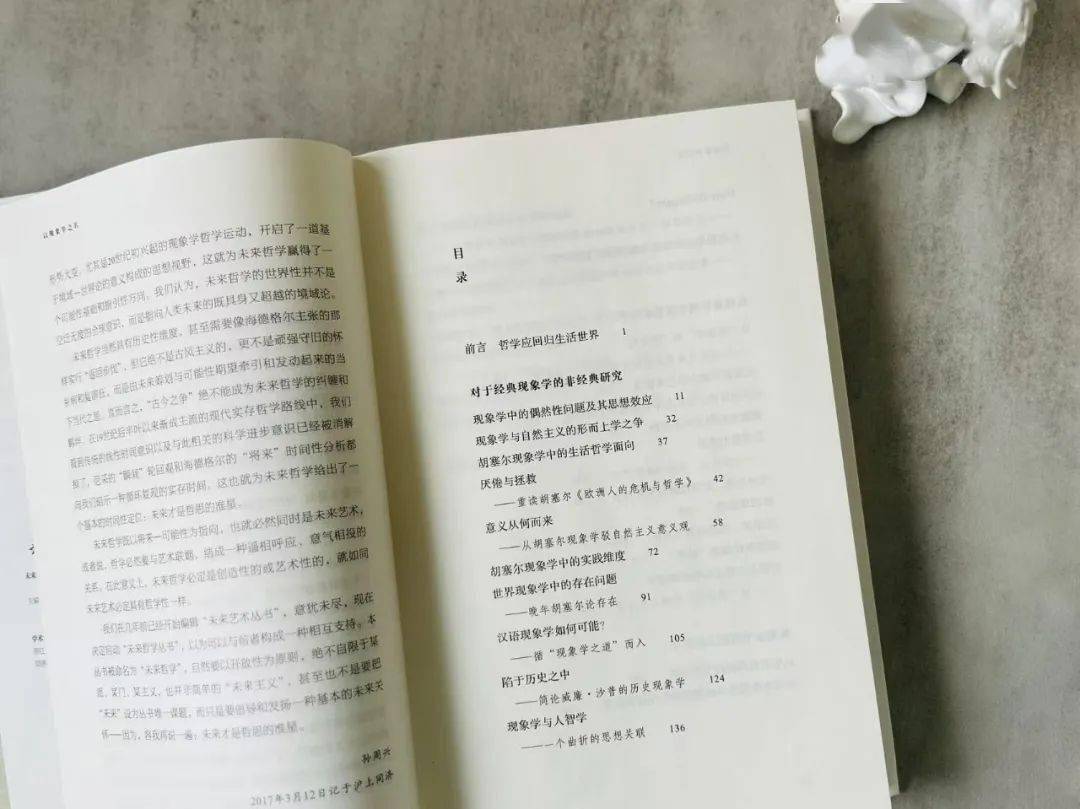 以现象学之名
形势大变，尤其是20世纪初兴起的现象学哲学运动，开启了一道基
于境域—世界论的意义构成的思想视野，这就为未来哲学赢得了一
个可能性基础和指引性方向。我们认为，未来哲学的世界性并不是
空泛无度的全球意识，而是指向人类未来的既具身又超越的境域论。
未来哲学当然具有历史性维度，甚至需要像海德格尔主张的那
样实行“返回步伐”，但它绝不是古风主义的，更不是顽强守旧的怀
乡病和复辟狂，而是由未来筹划与可能性期望牵引和发动起来的当
下当代之思。直而言之，“古今之争”绝不能成为未来哲学的纠缠和
羁绊。在19世纪后半叶以来渐成主流的现代实存哲学路线中，我们
看到传统的线性时间意识以及与此相关的科学进步意识已经被消解
掉了，尼采的“瞬间”轮回观和海德格尔的“将来”时间性分析都
向我们昭示一种循环复现的实存时间。这也就为未来哲学给出了一
个基本的时间性定位：未来才是哲思的准星。
未来哲学既以将来—可能性为指向，也就必然同时是未来艺术，
或者说，哲学必然要与艺术联姻，结成一种遥相呼应、意气相投的
关系。在此意义上，未来哲学必定是创造性的或艺术性的，就如同
未来艺术必定具有哲学性一样。
我们在几年前已经开始编辑“未来艺术丛书”，意犹未尽，现在
决定启动“未来哲学丛书”，以为可以与前者构成一种相互支持。本
丛书被命名为“未来哲学”，自然要以开放性为原则，绝不自限于某
派、某门、某主义，也并非简单的“未来主义”，甚至也不是要把
“未来”设为丛书唯一课题，而只是要倡导和发扬一种基本的未来关
怀——因为，容我再说一遍：未来才是哲思的准星。
孙周兴
2017年3月12日记于沪上同济
目
录
前言 哲学应回归生活世界 1
对于经典现象学的非经典研究
现象学中的偶然性问题及其思想效应 11
现象学与自然主义的形而上学之争 32
胡塞尔现象学中的生活哲学面向 37
厌倦与拯救
——重读胡塞尔《欧洲人的危机与哲学》 42
意义从何而来
——从胡塞尔现象学驳自然主义意义观 58
胡塞尔现象学中的实践维度 72
世界现象学中的存在问题
——晚年胡塞尔论存在 91
汉语现象学如何可能？
——循“现象学之道”而入 105
陷于历史之中
——简论威廉·沙普的历史现象学 124
现象学与人智学
——一个曲折的思想关联 136